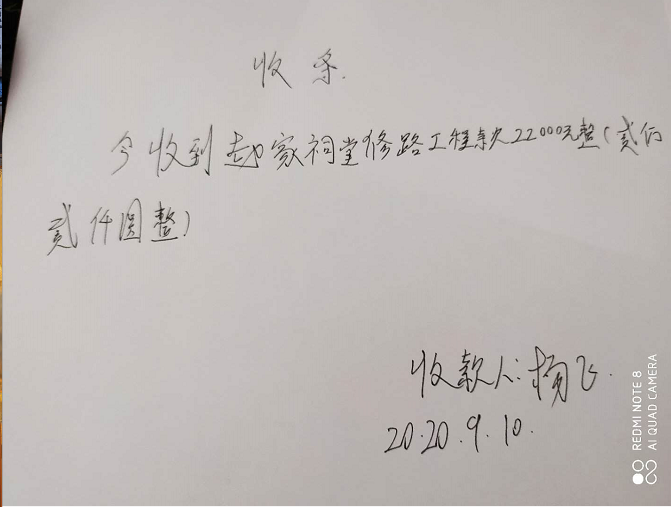 收条.
今收到赵家祠堂修路工程款22000元整(贰仟
贰仟圆整)
收款人:杨飞.
2020.9.10.
REDMI NOTE 8
AI QUAD CAMERA